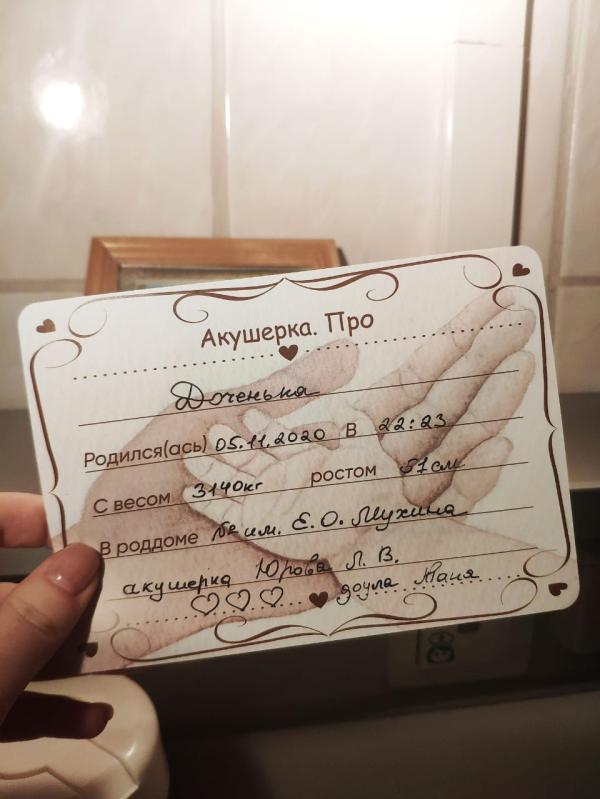 Акушерка. Про
Доченька
Родился(ась) 05.11.2020 В 22:23
С весом 3140кг ростом 51см
В роддоме №2 им. Е. О. Мухина
акушерка Юрова Л. В.
доула Таня